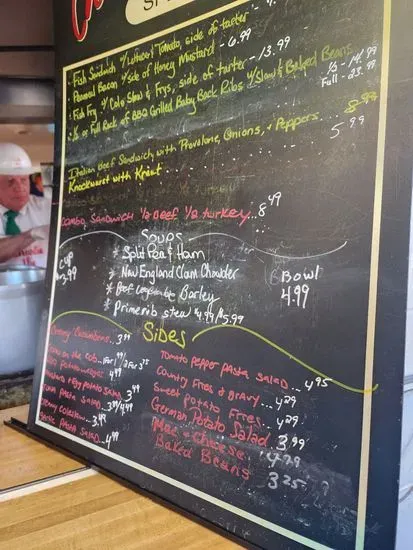 SP
Fish Sandwich w/ Lettuce, Tomato, side of tarter
Peameal Bacon w/ side of Honey Mustard - 6.99
Fish Fry w/ Cole Slaw & Frys, side of tarter - 13.99
1/2 or Full Rack of BBQ Grilled Baby Back Ribs w/ Slaw & Baked Beans
1/2 - 14.99
Full - 23.99
Italian Beef Sandwich with Provolone, Onions, & Peppers. 8.99
Knockwurst with Kraut 5.99
Combo Sandwich 1/2 Beef 1/2 Turkey... 8.49
Soups
Cup 3.99
Bowl 4.99
* Split Pea & Ham
* New England Clam Chowder
* Beef Vegetable Barley
* Prime rib stew 4.99/$5.99
Sides
Creamy Cucumbers.. 3.99
Corn on the Cob...
Mustard + Egg Potato Salad 3.49
Tuna Pasta Salad... 3.99/4.49
Creamy Coleslaw... 3.49
Pasta Salad... 4.49
Tomato Pepper Pasta Salad... 4.95
Country Fries & Gravy... 4.29
Sweet Potato Fries... 4.29
German Potato Salad 3.99
Mac + Cheese. 4.79
Baked Beans 3.25